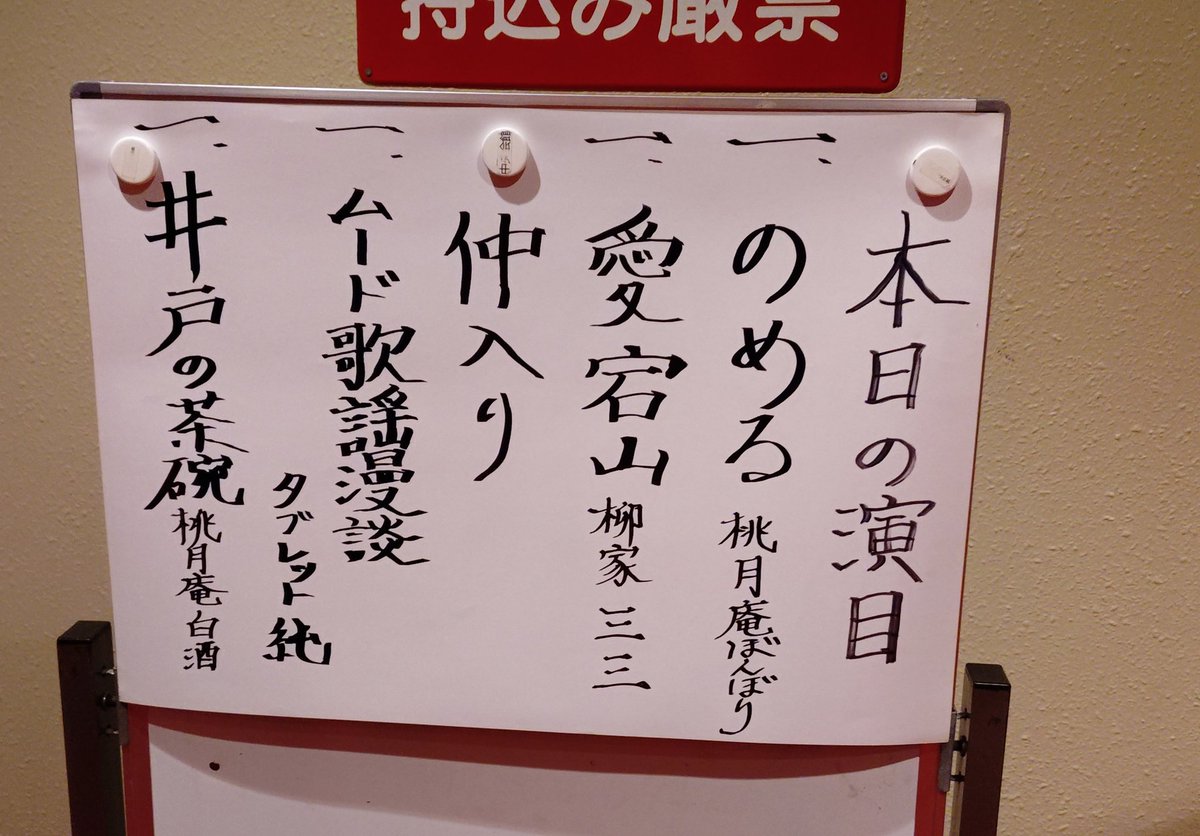 持込み厳禁
本日の演目
一、のめる 桃月庵ぼんぼり
一、愛宕山 柳家 三三
仲入り
一、ムード歌謡漫談
タブレット純
一、井戸の茶碗 桃月庵白酒